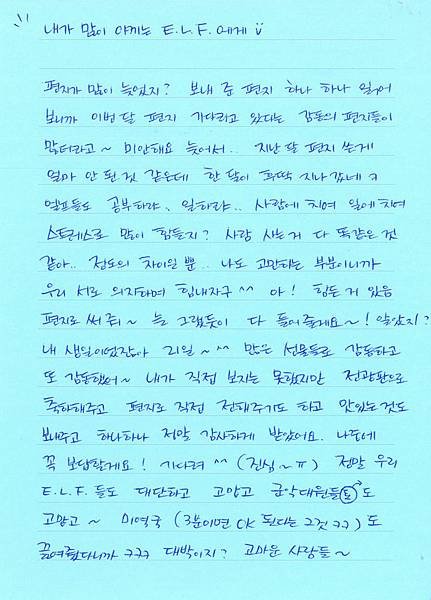 내가 많이 아끼는 E.L.F. 에게 ü
편지가 많이 늦었지? 보내 준 편지 하나 하나 읽어
보니까 이번 달 편지 기다리고 있다는 감동의 편지들이
많더라고~ 미안해요 늦어서.. 지난 달 편지 쓴게
얼마 안 된 것 같은데 한 달이 후딱 지나갔네 ㅋ
엘프들도 공부하랴, 일하랴.. 사람에 치여 일에 치여
스트레스로 많이 힘들지? 사람 사는거 다 똑같은 것
같아.. 정도의 차이일 뿐.. 나도 고민하는 부분이니까
우리 서로 의지하며 힘내자구 ^^ 아! 힘든 거 있음
편지로 써 줘~ 늘 그랬듯이 다 들어줄게요~! 알았지?
내 생일이었잖아 21일~^^ 많은 선물들로 감동하고
또 감동했어~ 내가 직접 보지는 못했지만 전광판으로
축하해주고 편지로 직접 전해주기도 하고 맛있는것도
보내주고 하나하나 정말 감사하게 받았어요. 나중에
꼭 보답할게요! 기다려 ^^ (진심~ㅠ) 정말 우리
E.L.F. 들도 대단하고 고맙고 군악대원들도
고맙고~ 미역국 (3분이면 OK 된다는 그것 ㅋㅋ) 도
끓여줬다니까 ㅋㅋㅋ 대박이지? 고마운 사람들~